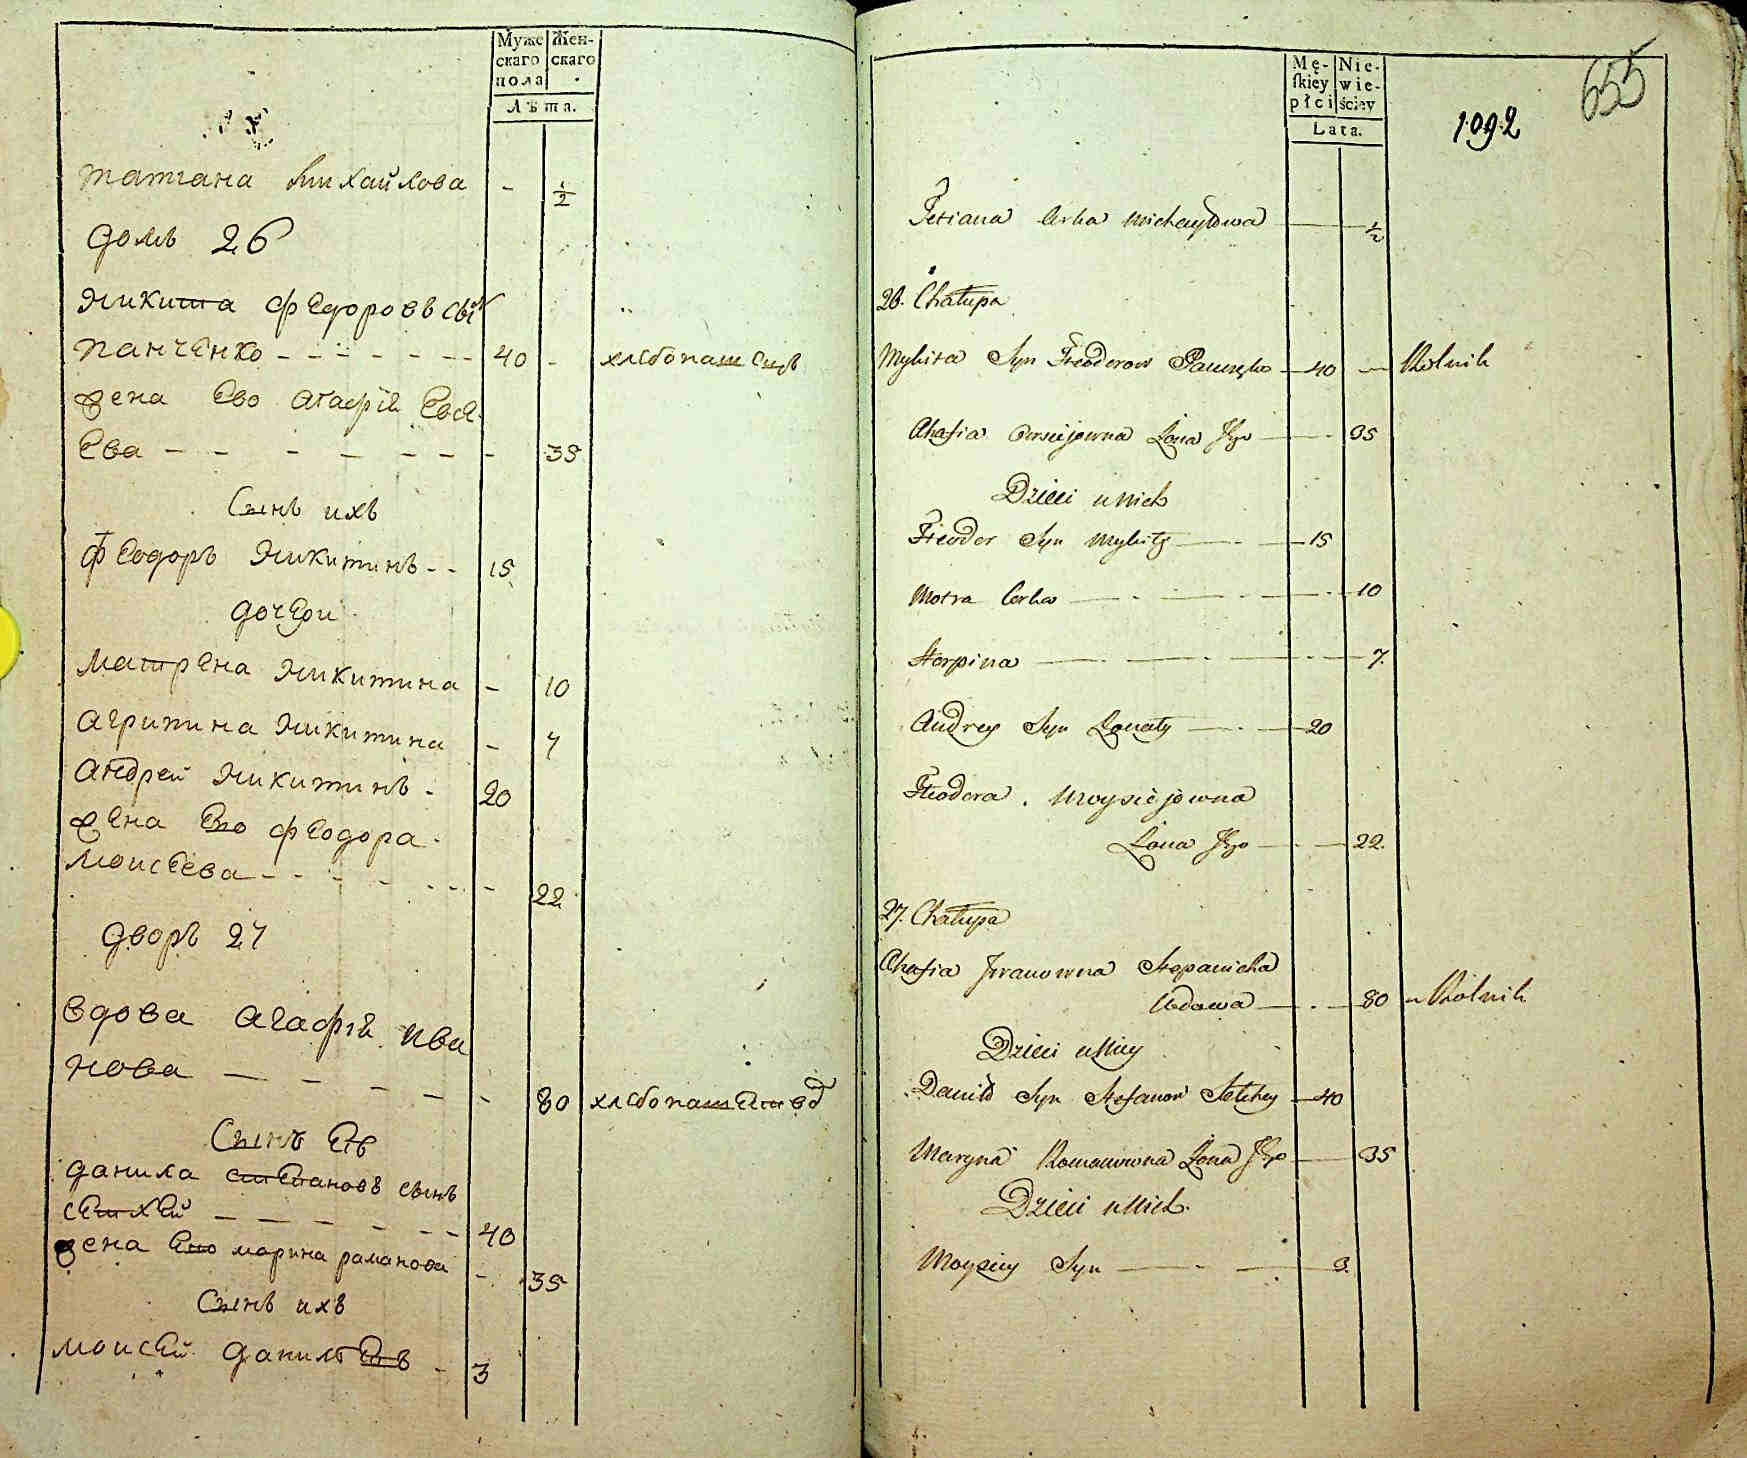 Муже
скаго
пола
Жен-
скаго
Лѣта.
татiана михайлова - ½
домъ 26
никита федоровъ сы
панченко - - - - - - - 40 - хлебопашецъ
жена ево агафiя Евсе
Ева - - - - - - - - 35
Сынъ ихъ
феодоръ никитинъ - - 15
дочери
матрена никитина - 10
агрипина никитина - 7
андрей никитинъ - 20
жена Ево феодора
моисеева - - - - - - - 22
дворъ 27
вдова агафiя ива
нова - - - - - - 80 хлебопаш
Сынъ Ея
данила степановъ сынъ
сетхей - - - - - - - 40
жена Ево марина раманова - 35
Сынъ ихъ
моисей данил - 3
Mę-
skiey
płci
Nie-
wie-
ściey
Lata.
655
1092
Tetiana Crka Michayłowa ½
26. Chałupa
Mykita Syn Fteodorow Panczęko 40 Rolnik
Ahafia Owsiejowna Żona Jego 35
Dzieci u Nich
Fteodor Syn Mykity 15
Motra Corka 10
Horpina 7.
Andrey Syn Żonaty 20
Fteodora Moysiejowna
Żona Jego 22.
27. Chałupa
Ahafia Jwanowna Stepanicha
Wdowa 80 Rolnik
Dzieci u Niey
Daniło Syn Stefanow Setchey 40
Maryna Romanowna Żona Jego 35
Dzieci u Nich.
Moysiey Syn 3.